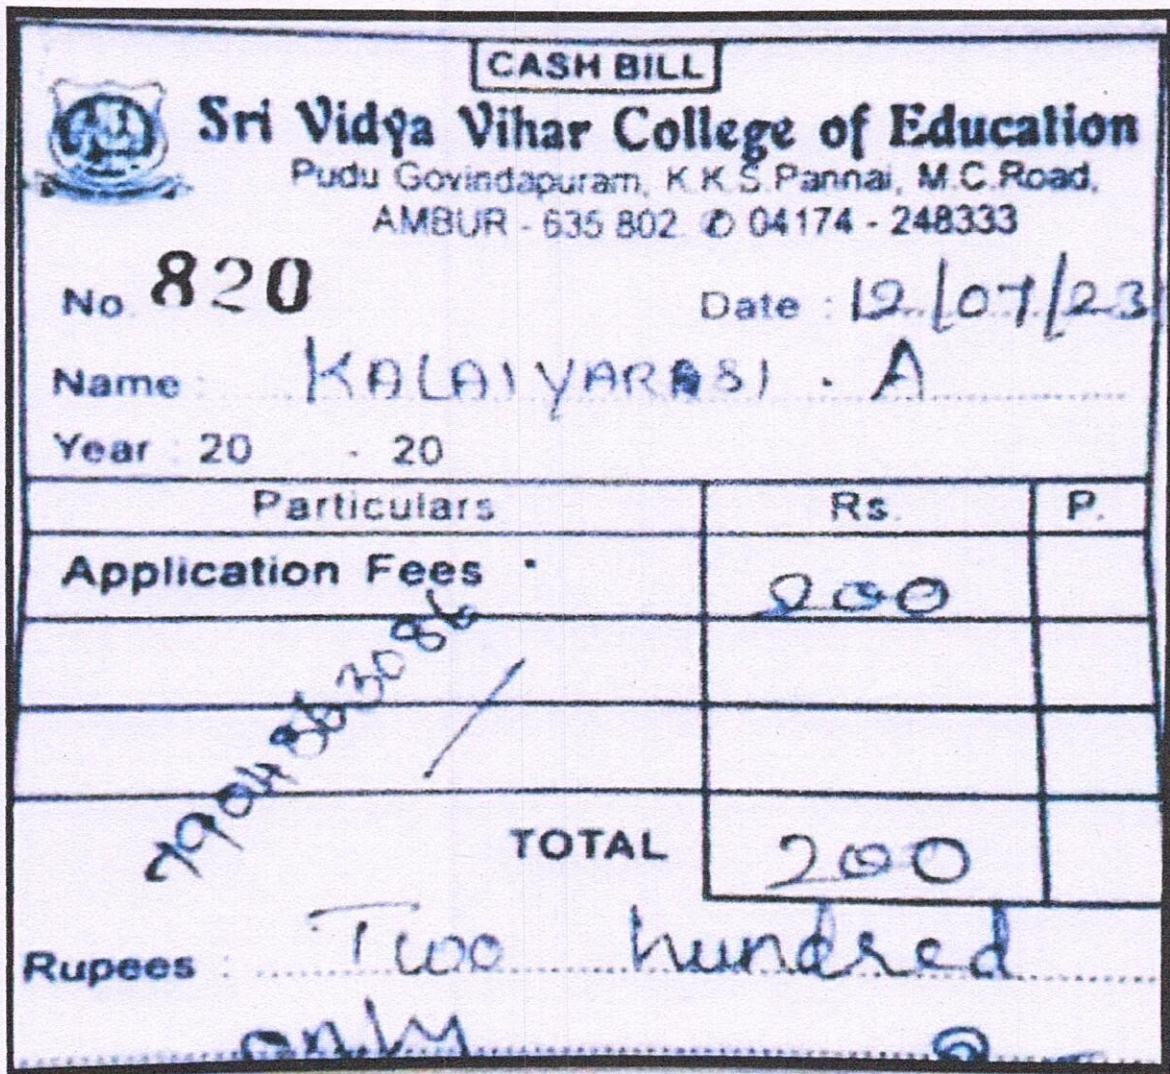 CASH BILL
Sri Vidya Vihar College of Education
Pudu Govindapuram, K.K.S.Pannai, M.C.Road,
AMBUR - 635 802. ✆ 04174 - 248333
No. 820 Date : 12/07/23
Name : KALAIYARASI . A
Year : 20 - 20
Particulars Rs. P.
Application Fees 200
7904863086
TOTAL 200
Rupees : Two hundred
only